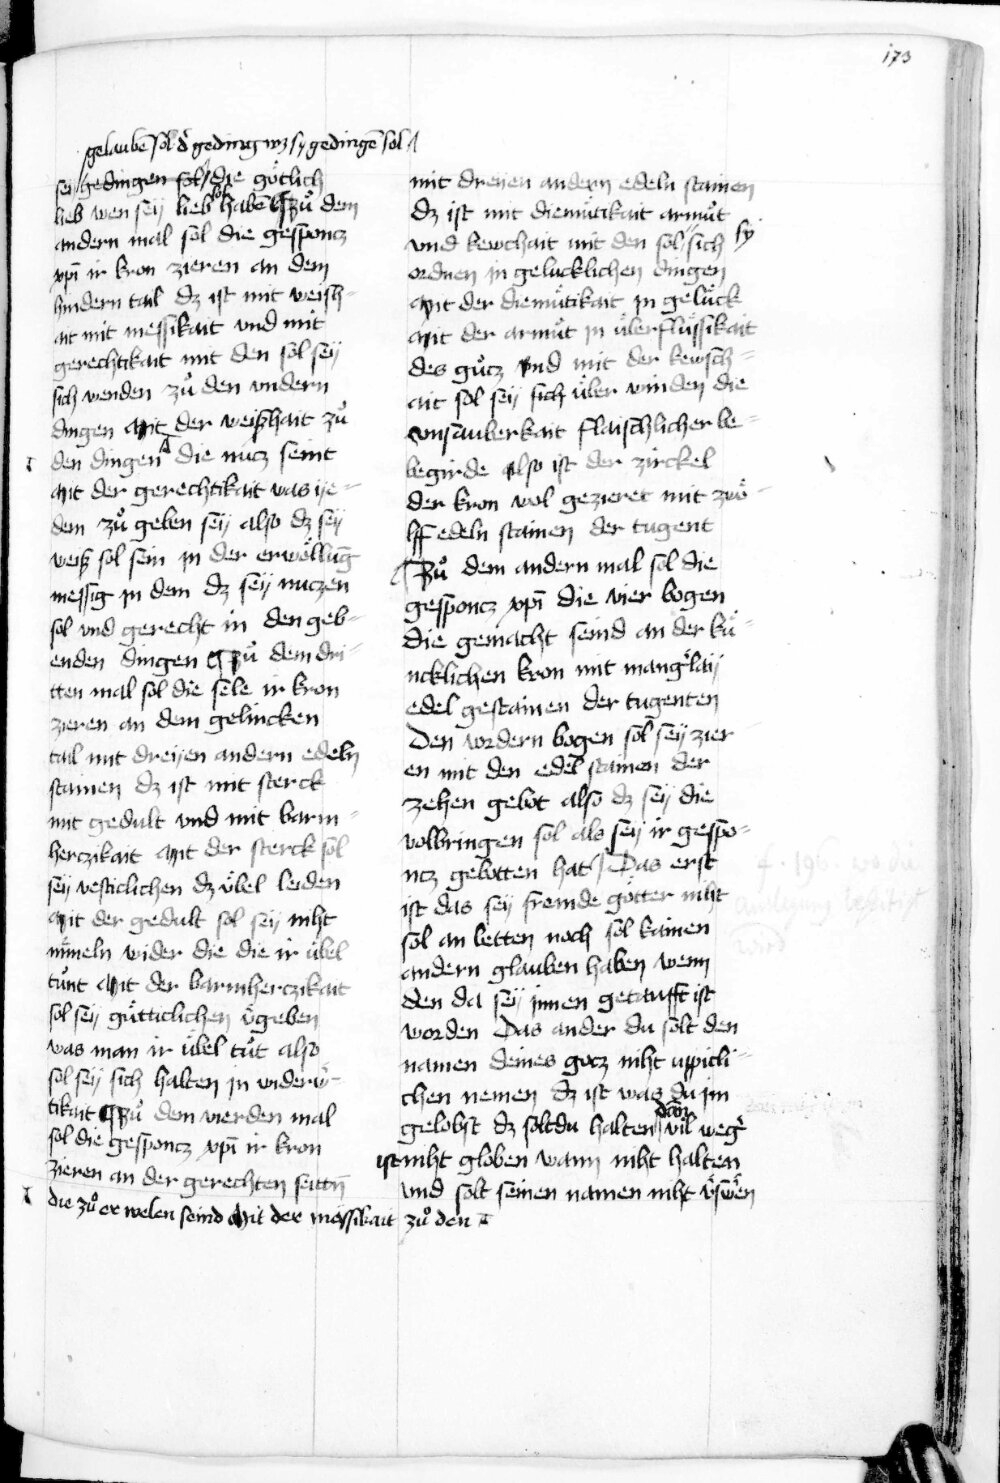 173
gelaubē sol d' geding wz sy gedingē sol
seij gedingen sol die götlich
lieb wen seij lieb sol habē ¶ Zuͦ dem
andern mal sol die gesponcz
xp̄i ir kron zieren an dem
hindern tail dz ist mit weish=
ait mit messikait vnd mit
gerechtikait mit den sol seij
sich wenden zuͦ den vndern
dingen Mit der weißhait zuͦ
den dingen die nücz seint
Mit der gerechtikait was ije=
dem zuͦ geben seij also dz seij
weiß sol sein in der erwöllūg
messig in dem dz seij nuczen
sol vnd gerecht in den geb=
enden dingen ¶ Zuͦ dem dri=
tten mal sol die sele ir kron
zieren an dem gelincken
tail mit dreijen andern edeln
stainen dz ist mit sterck
mit gedult vnd mit barm=
herczikait Mit der sterck sol
seij vesticlichen dz übel leiden
Mit der gedult sol seij niht
müneln wider die die ir übel
tuͦnt Mit der barmherczikait
sol seij guͤtticlichen v̓geben
was man ir übel tuͦt also
sol seij sich halten in widerw̓=
tikait ¶ Zuͦ dem vierden mal
sol die gesponcz xp̄i ir kron
zieren an der gerechten seittn̄
die zuͦ erwelen seind Mit der mässikait zuͦ den
mit dreijen andern edeln stainen
dz ist mit diemuͤtikait armuͦt
vnd kewchait mit den sol sy sich
ordnen in gelücklichen dingen
Mit der diemuͤtikait in gelück
Mit der armuͦt in überflüssikait
des guͦcz vnd mit der kewsch=
ait sol seij sich überwinden die
vnsauberkait flaischlicher be=
begirde Also ist der zirckel
der kron wol gezieret mit zwö=
lff edeln stainen der tugent
¶ Zuͦ dem andern mal sol die
gesponcz xp̄i die vier bogen
die gemacht seind an der kü=
ncklichen kron mit mang'laij
edel gestainen der tugenten
Den vordern bogen sol seij zier=
en mit den edel stainen der
zehen gebot also dz seij die
volbringen sol als seij ir gespo=
ncz gebotten hat Das erst
ist das seij fremde götter niht
sol an betten noch sol kainen
andern glauben haben wenn
den da seij jnnen getaufft ist
worden Das ander du solt den
namen deines gocz niht üppicli=
chen nemen dz ist was du im
gelobst dz soltdu halten dan vil weg'
ist niht globen wann niht halten
vnd solt seinen namen niht v̓sw̓en